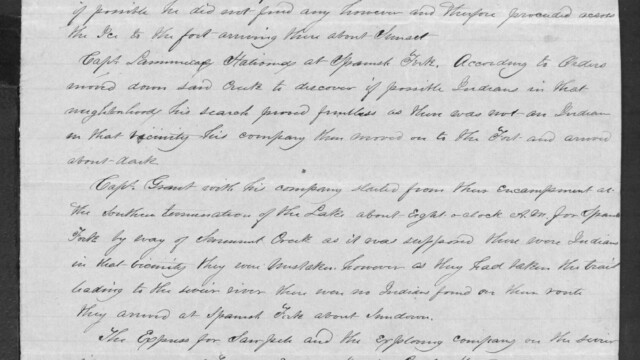 if possible he did not find any however and therefore proceeded across
the Ice to the fort arriving there about Sunset
Capt Stationed at Spanish Fork. According to Orders
moved down said Creek to discover if possible Indians in that
neighborhood his search proved fruitless as there was not an Indian
in that vicinity his company then moved on to the Fort and arrived
about dark
Capt. Grant with his company started from their encampment at
the Southern termination of the Lake about Eight o clock A.M. for Spanish
Fork by way of Summit Creek as it was supposed there were Indians
in that vicinity they were mistaken however as they had taken the trail
leading to the sevier river there were no Indians found on their route
they arrived at Spanish Fork about Sundown.
The Express for Sanpete and the exploring company on the sevier